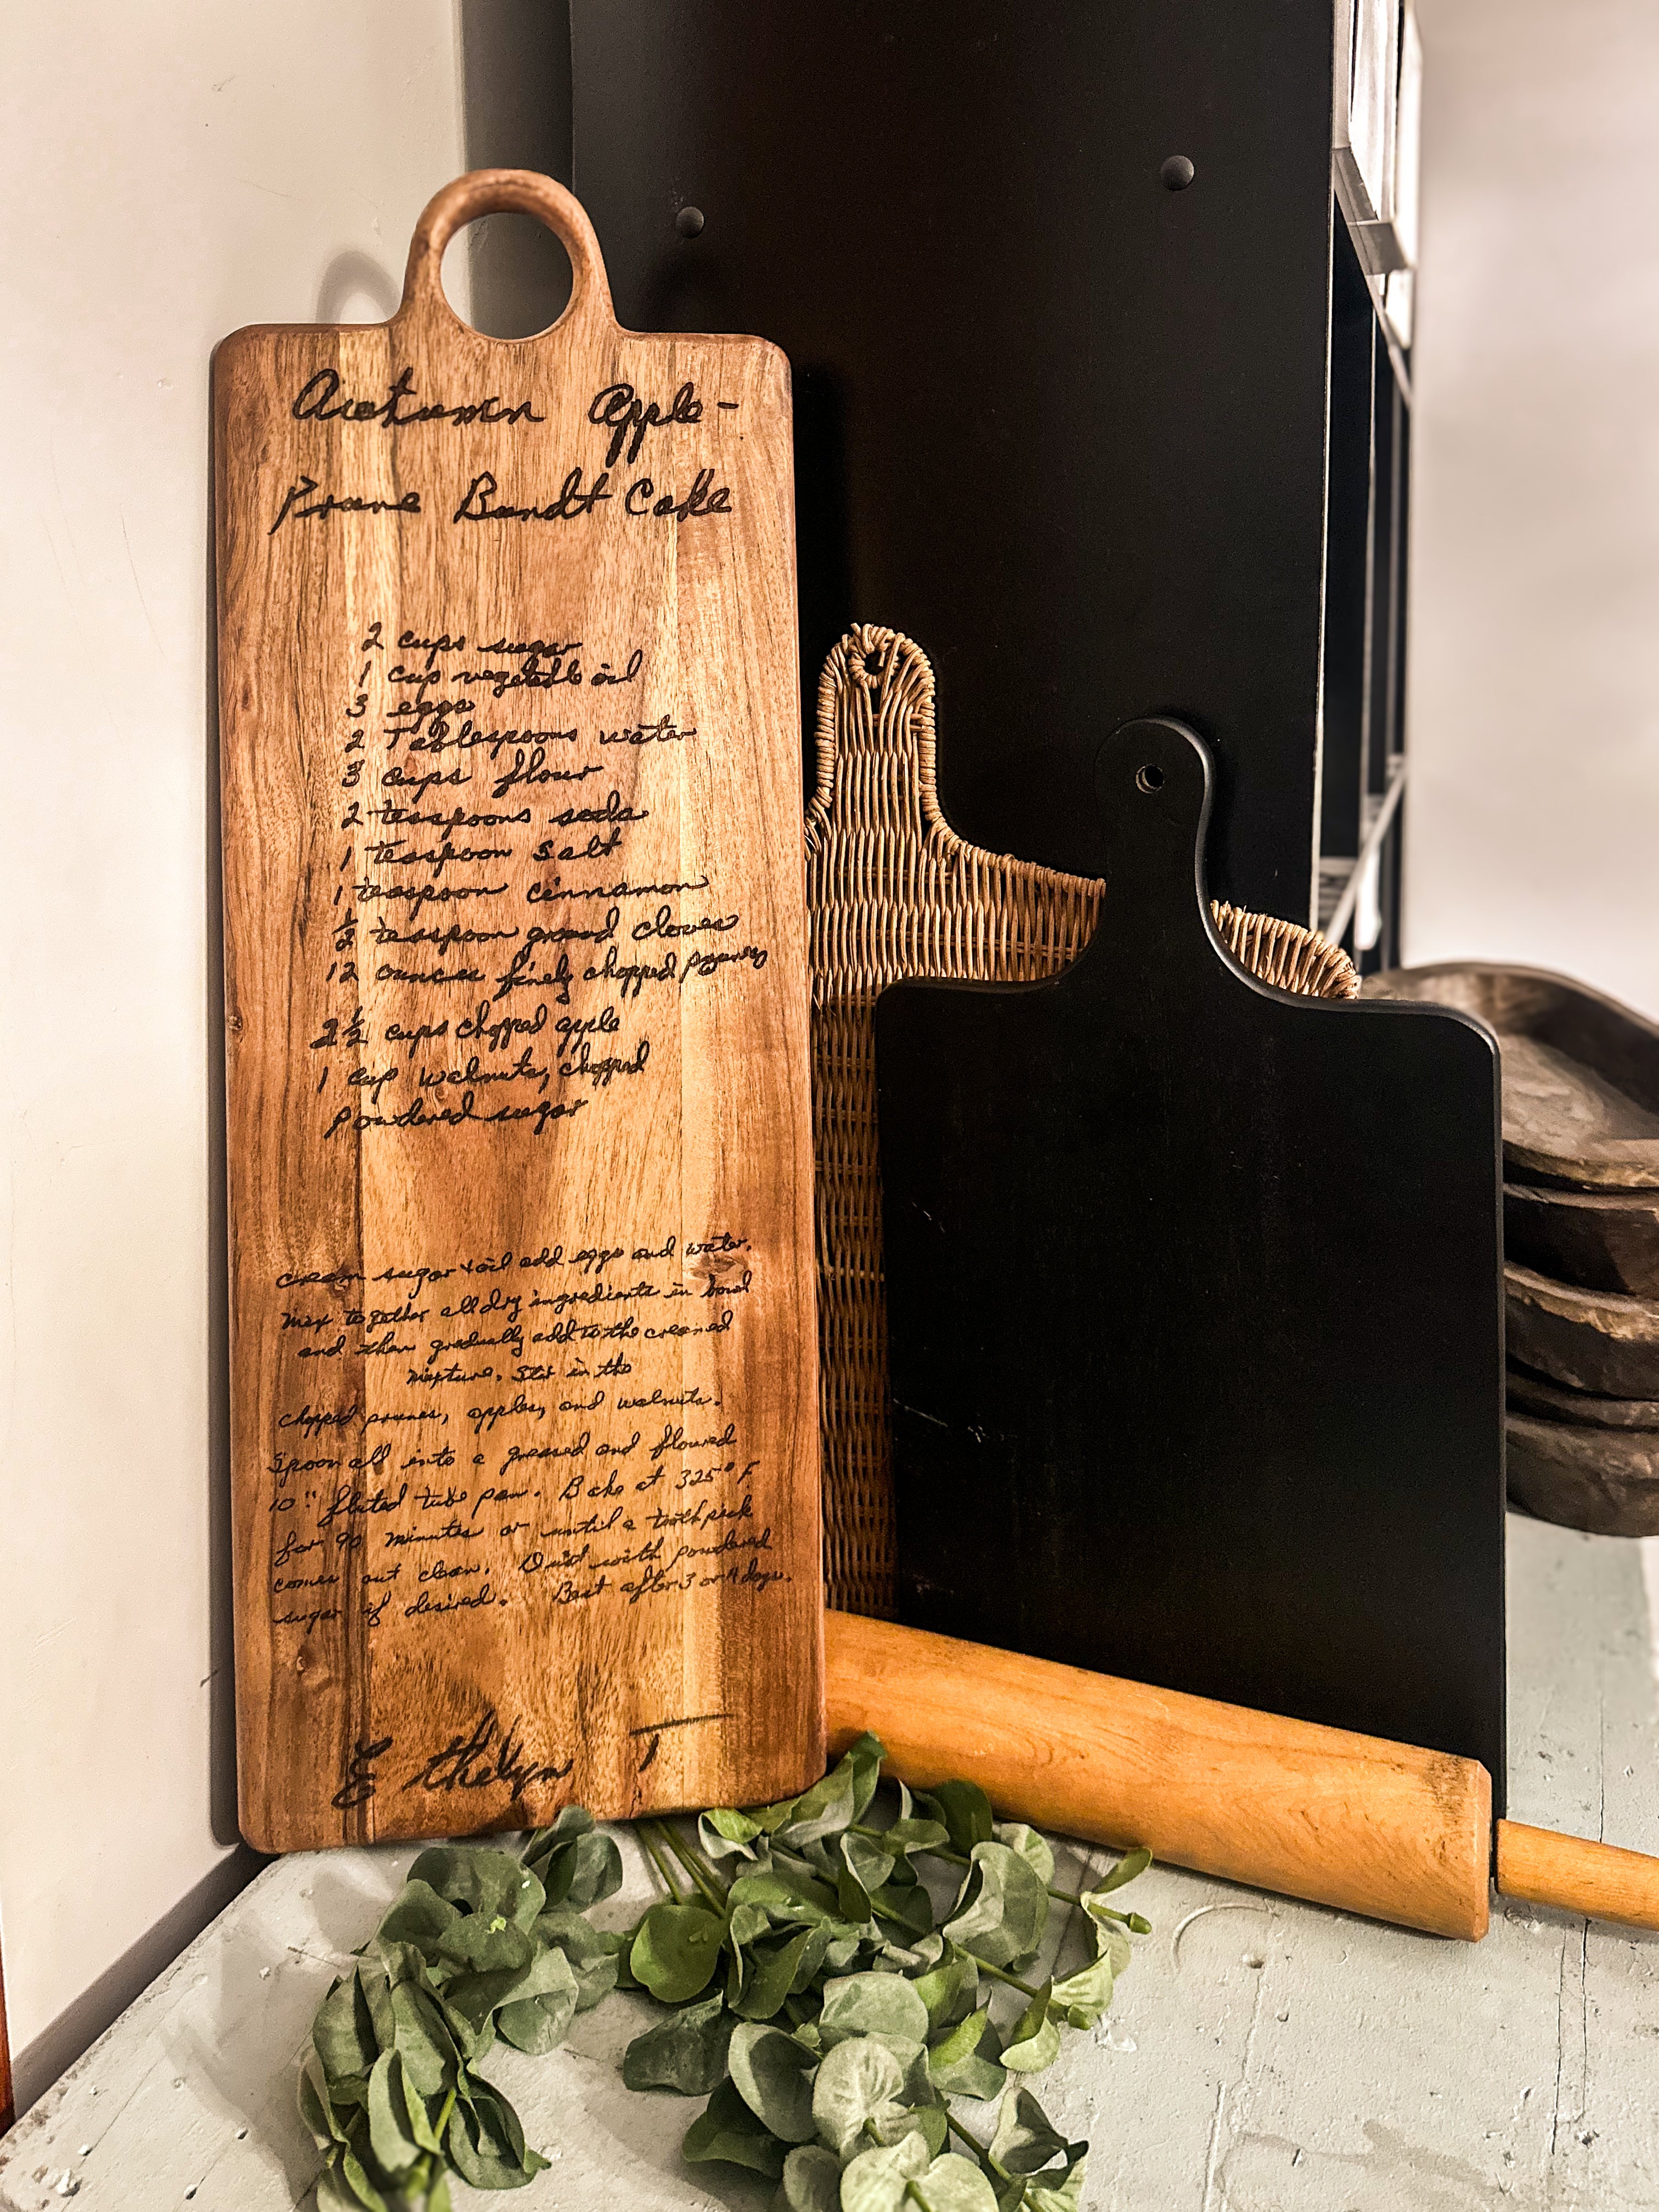 Autumn Apple-
Prune Bundt Cake
2 cups sugar
1 cup vegetable oil
3 eggs
2 Tablespoons water
3 cups flour
2 teaspoons soda
1 teaspoon salt
1 teaspoon cinnamon
½ teaspoon ground cloves
12 ounces finely chopped prunes
2½ cups chopped apple
1 cup walnuts, chopped
powdered sugar
cream sugar + oil add eggs and water.
Mix together all dry ingredients in bowl
and then gradually add to the creamed
mixture. Stir in the
chopped prunes, apples, and walnuts.
Spoon all into a greased and floured
10" fluted tube pan. Bake at 325° F
for 90 minutes or until a toothpick
comes out clean. Dust with powdered
sugar if desired. Best after 3 or 4 days.
Ethelyn T